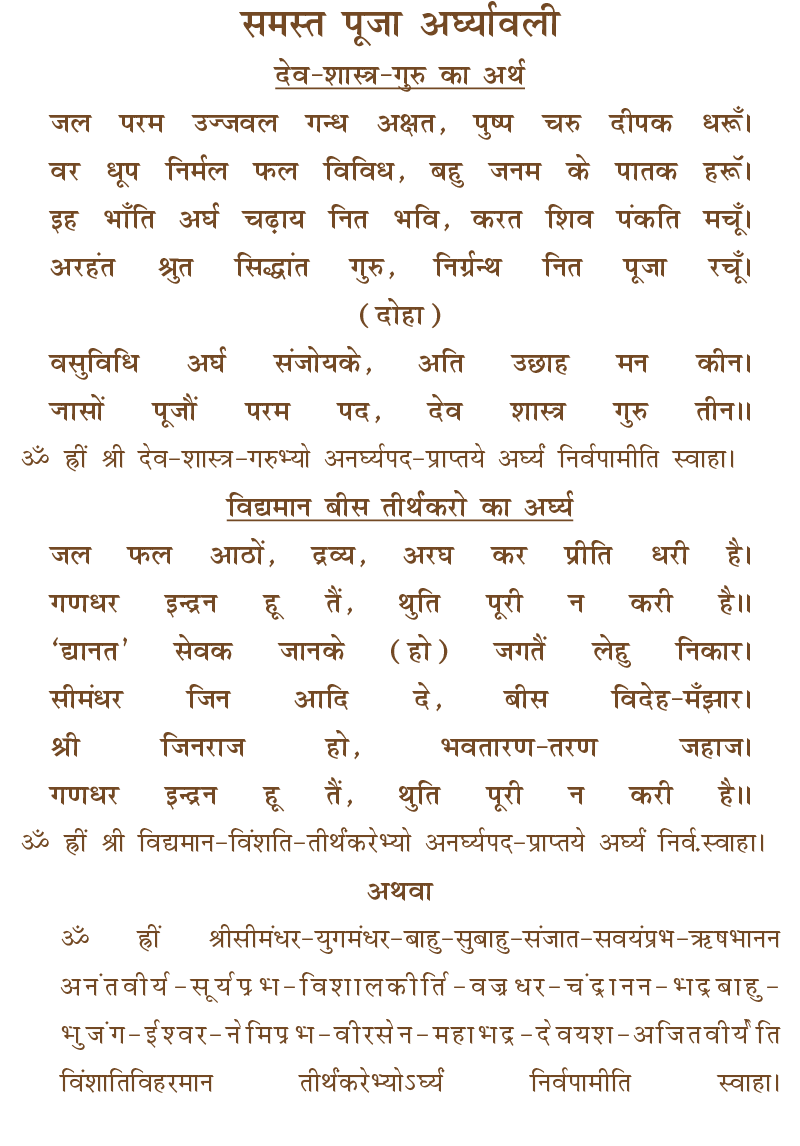 समस्त पूजा अर्घ्यावली
देव-शास्त्र-गुरु का अर्थ
जल परम उज्जवल गन्ध अक्षत, पुष्प चरु दीपक धरूँ।
वर धूप निर्मल फल विविध, बहु जनम के पातक हरूॅं।
इह भाँति अर्घ चढ़ाय नित भवि, करत शिव पंकति मचूँ।
अरहंत श्रुत सिद्धांत गुरु, निर्ग्रन्थ नित पूजा रचूँ।
(दोहा)
वसुविधि अर्घ संजोयके, अति उछाह मन कीन।
जासों पूजौं परम पद, देव शास्त्र गुरु तीन॥
ॐ ह्रीं श्री देव-शास्त्र-गरुभ्यो अनर्घ्यपद-प्राप्तये अर्घ्यं निर्वपामीति स्वाहा।
विद्यमान बीस तीर्थंकरो का अर्घ्य
जल फल आठों, द्रव्य, अरघ कर प्रीति धरी है।
गणधर इन्द्रन हू तैं, थुति पूरी न करी है॥
‘द्यानत’ सेवक जानके (हो) जगतैं लेहु निकार।
सीमंधर जिन आदि दे, बीस विदेह-मँझार।
श्री जिनराज हो, भवतारण-तरण जहाज।
गणधर इन्द्रन हू तैं, थुति पूरी न करी है॥
ॐ ह्रीं श्री विद्यमान-विंशति-तीर्थंकरेभ्यो अनर्घ्यपद-प्राप्तये अर्घ्यं निर्व.स्वाहा।
अथवा
ॐ ह्रीं श्रीसीमंधर-युगमंधर-बाहु-सुबाहु-संजात-सवयंप्रभ-ऋषभानन
अनंतवीर्य-सूर्यप्रभ-विशालकीर्ति-वज्रधर-चंद्रानन-भद्रबाहु-
भुजंग-ईश्वर-नेमिप्रभ-वीरसेन-महाभद्र-देवयश-अजितवीर्येति
विंशातिविहरमान तीर्थंकरेभ्योऽर्घ्यं निर्वपामीति स्वाहा।